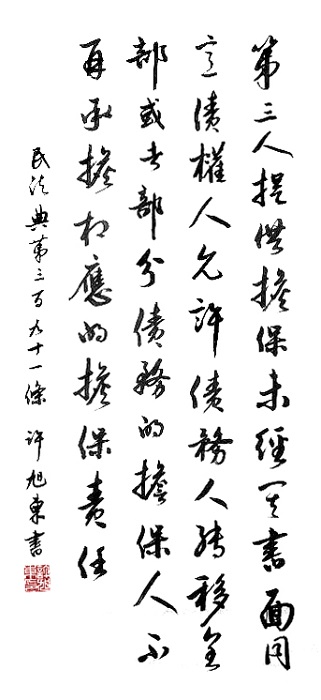 第三人提供擔保未經其書面同
意債權人允許債務人轉移全
部或者部分債務的擔保人不
再承擔相應的擔保責任
民法典第三百九十一條 許旭東書